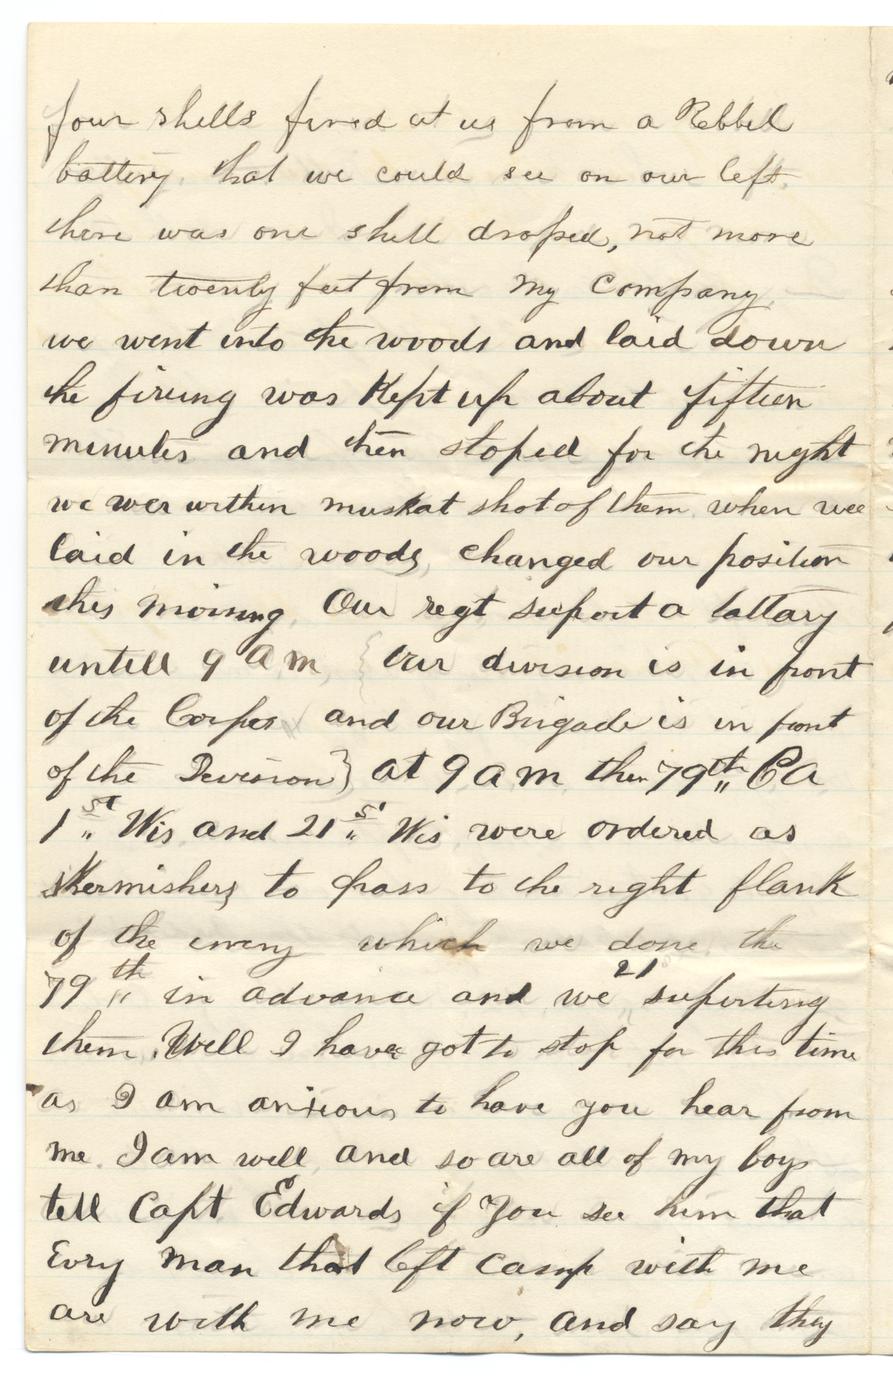 four shells fired at us from a Rebbel
battery that we could see on our left.
there was one shell droped, not more
than twenty feet from my Company
we went into the woods and laid down
the firing was Kept up about fifteen
minutes and then stoped for the night
we wer within muskat shot of them when wee
laid in the woods, changed our position
this morning. Our regt suport a battary
untill 9 a m, { Our division is in front
of the Corps and our Brigade is in front
of the Devision } at 9 a m the 79th Pa
1st Wis and 21st Wis were ordered as
skermishers to pass to the right flank
of the enemy which we done. the
79th in advance and we 21 suporting
them. Well I have got to stop for this time
as I am anxious to have you hear from
me. I am well and so are all of my boys
tell Capt Edwards if You see him that
Evry man that left camp with me
are with me now, and say they